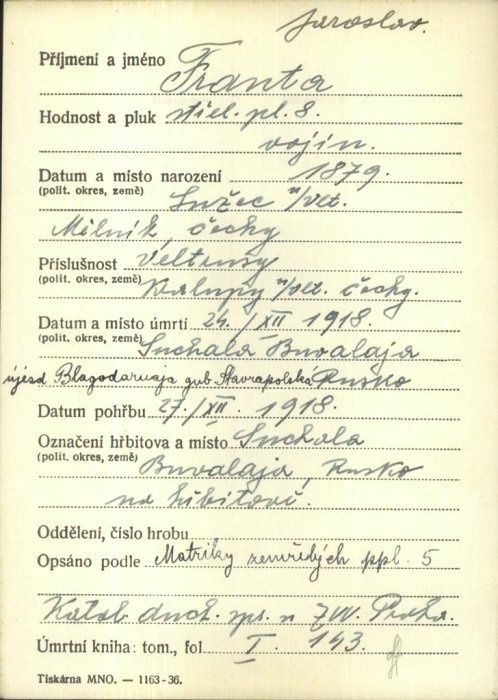 Jaroslav.
Příjmení a jméno Franta
Hodnost a pluk střel. pl. 8.
vojín.
Datum a místo narození 1879.
(polit. okres, země) Lužec n/Vlt.
Mělník, Čechy
Příslušnost Veltrusy
(polit. okres, země) Kralupy n/Vlt. Čechy.
Datum a místo úmrtí 24./XII 1918.
(polit. okres, země) Suchala Buvalaja
újezd Blagodarnaja gub. Stavropolská Rusko
Datum pohřbu 27./XII. 1918.
Označení hřbitova a místo Suchala
(polit. okres, země) Buvalaja, Rusko
na hřbitově.
Oddělení, číslo hrobu
Opsáno podle Matriky zemřelých ppl. 5
Katol. duch. spr. u ZVV. Praha.
Úmrtní kniha: tom., fol I. 143.
Tiskárna MNO. — 1163-36.